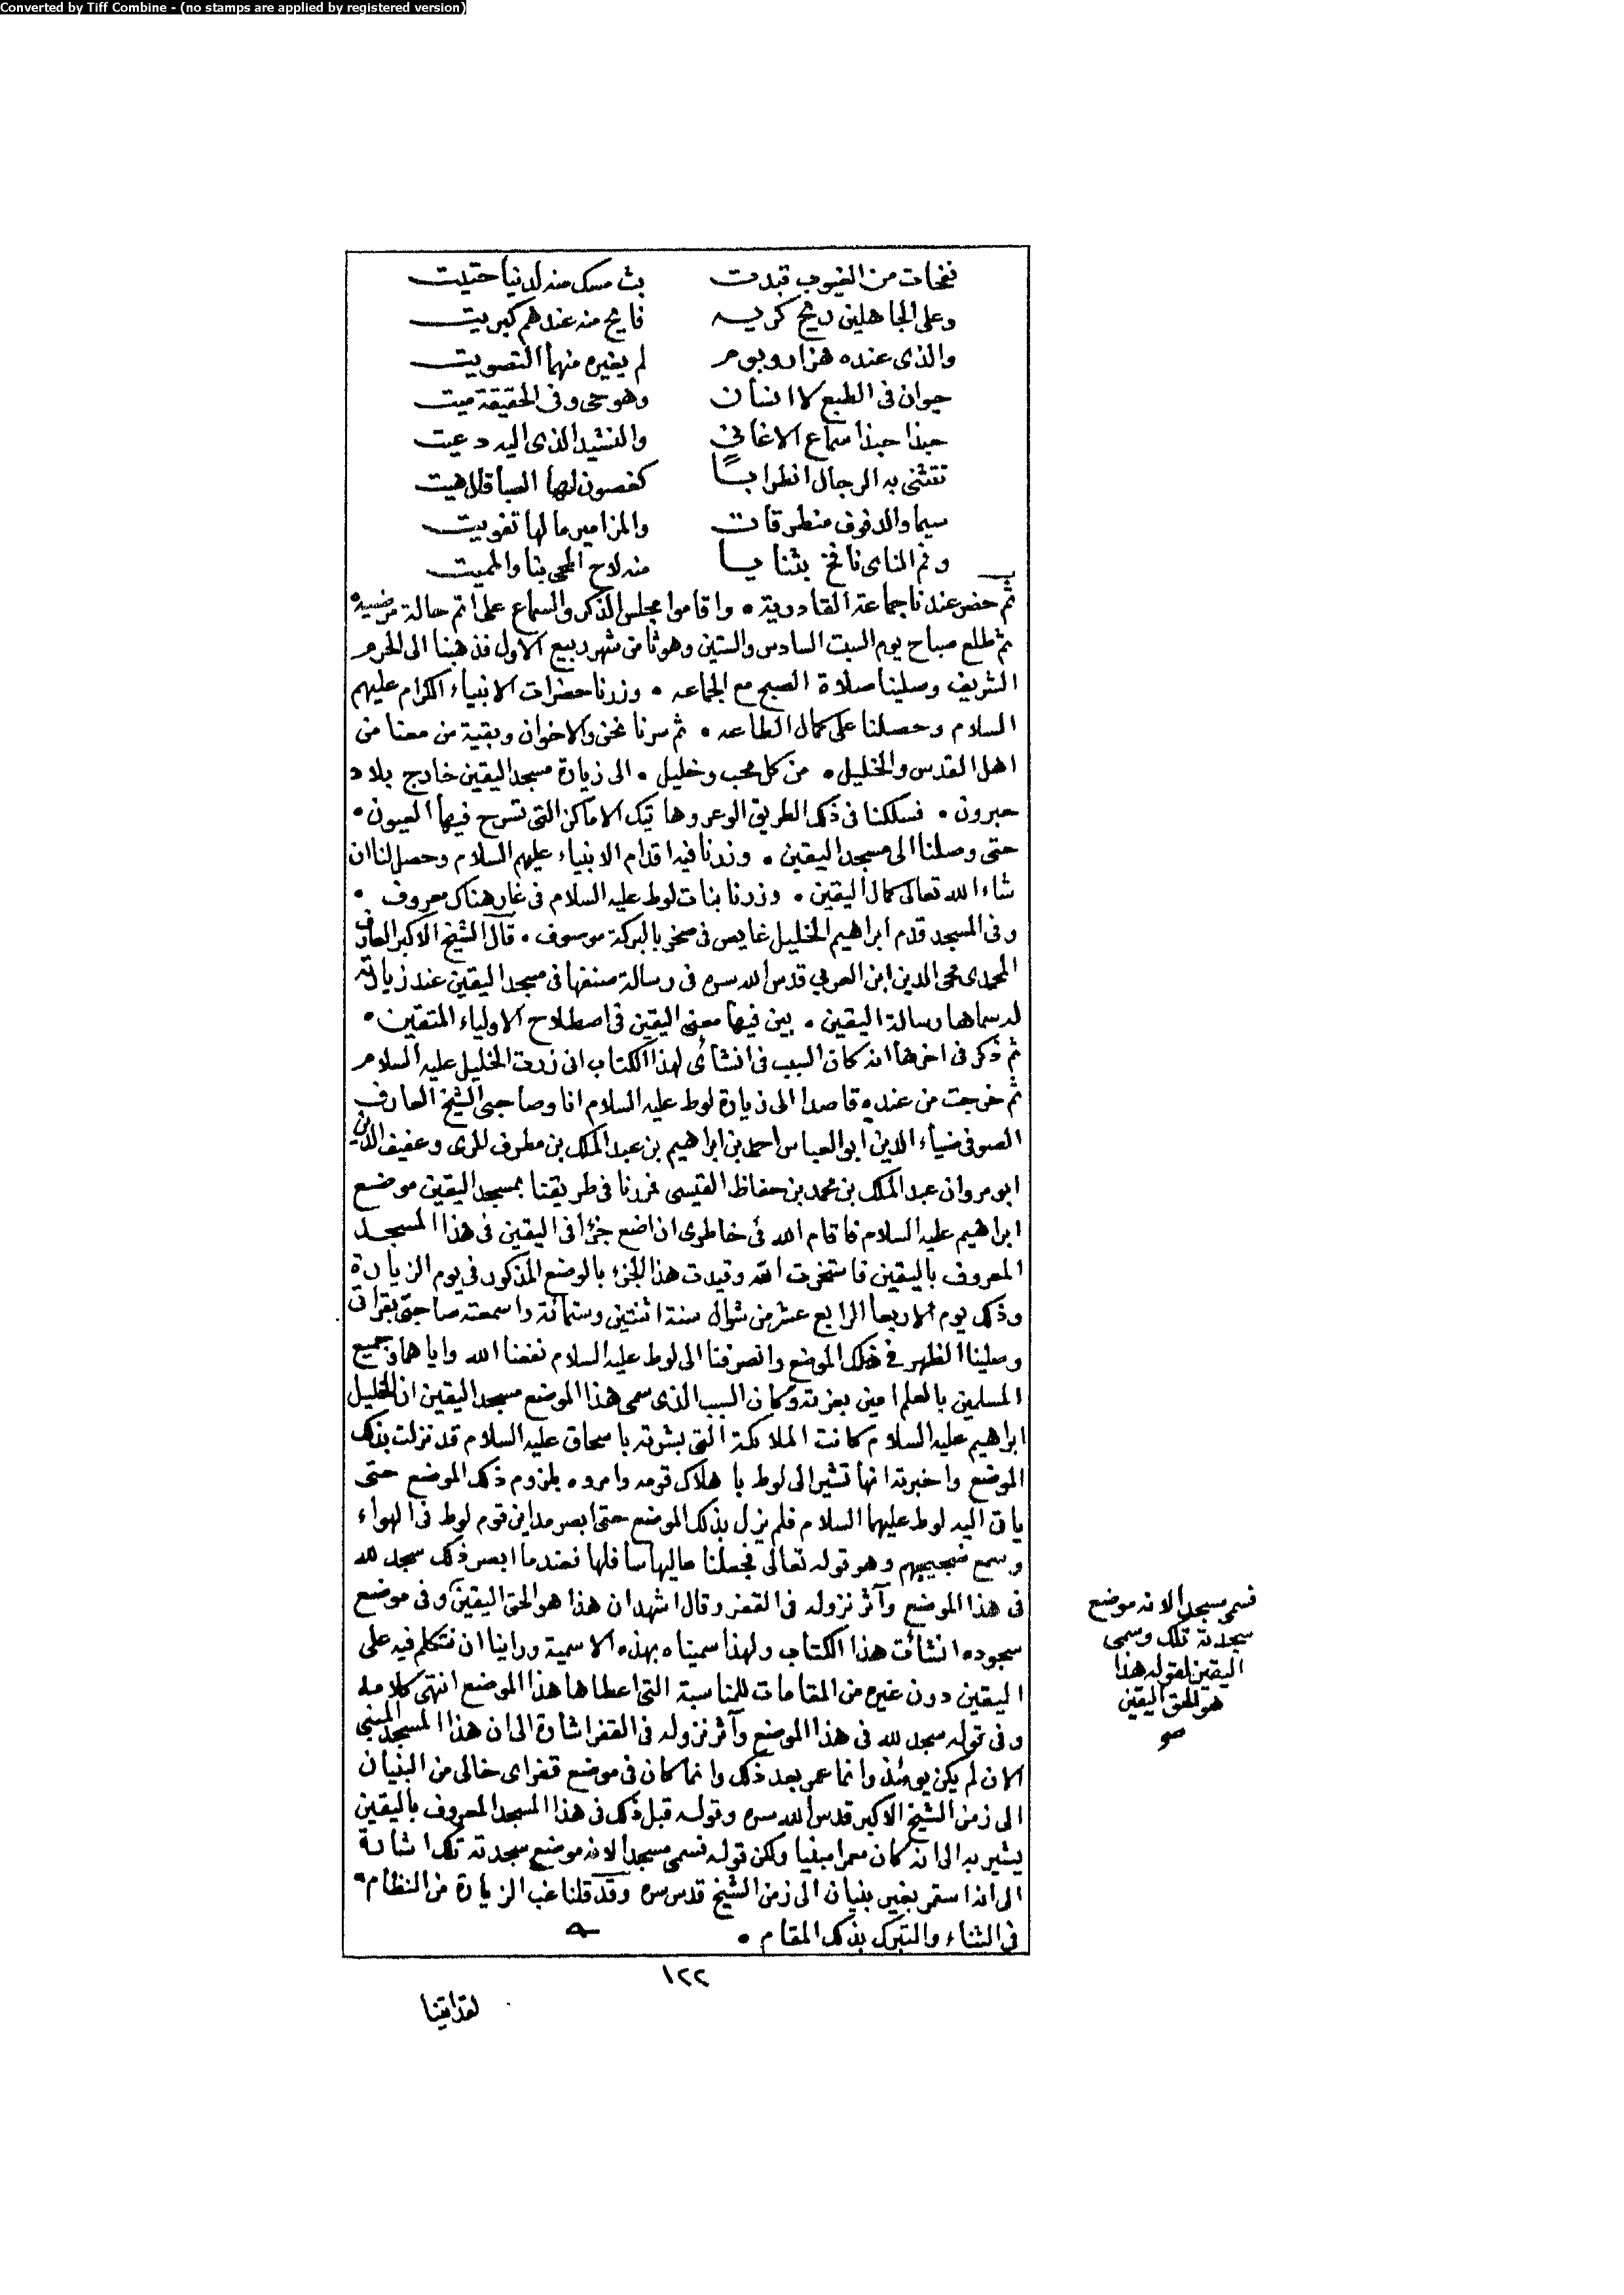 Converted by Tiff Combine - (no stamps are applied by registered version)
نفحات من الغيوب تبدت بث مسك منه لدنيا حتيت
وعلى الجاهلين ريح كريه فايح منه عندهم كبريت
والذى عنده هزار وبوم لم يغيره منهما التصويت
حيوان فى الطبع لا انسان وهو حى وفى الحقيقة ميت
حبذا حبذا سماع الاغانى والنشيد الذى اليه دعيت
تنثنى به الرجال اضطرابا كغصون لها الصبا قلا هيت
سيما والدفوف منطرقات والمزامير ما لها تفويت
وفم الناى نافخ بثنايا منه لاح المحى بنا والمميت
ثم حضر عندنا جماعة القادرية • واقاموا مجلس الذكر والسماع على اتم حالة مرضيه
ثم طلع صباح يوم السبت السادس والستين وهو ثامن شهر ربيع الاول فذهبنا الى الحرم
الشريف وصلينا صلاة الصبح مع الجماعه • وزرنا حضرات الانبياء الكرام عليهم
السلام وحصلنا على كمال الطاعه • ثم سرنا نحن والاخوان وبقية من معنا من
اهل القدس والخليل • من كل محب وخليل • الى زيارة مسجد اليقين خارج بلاد
حبرون • فسلكنا فى ذلك الطريق الوعر وهاتيك الاماكن التى تسرح فيها العيون •
حتى وصلنا الى مسجد اليقين • وزرنا فيه اقدام الانبياء عليهم السلام وحصل لنا ان
شاء الله تعالى كمال اليقين • وزرنا بنات لوط عليه السلام فى غار هناك معروف •
وفى المسجد قدم ابراهيم الخليل غايص فى صخر بالبركة موصوف • قال الشيخ الاكبر العارف
المحمدى محى الدين ابن العربي قدس الله سره فى رسالة صنفها فى مسجد اليقين عند زيارته
له سماها رسالة اليقين • بين فيها معنى اليقين فى اصطلاح الاولياء المتقين •
ثم ذكر فى اخرها انه كان السبب فى انشائى لهذا الكتاب انى زرت الخليل عليه السلام
ثم خرجت من عنده قاصدا الى زيارة لوط عليه السلام انا وصاحبى الشيخ العارف
الصوفى ضياء الدين ابو العباس احمد بن ابراهيم بن عبد الملك بن مطرف المرى وعفيف الدين
ابو مروان عبد الملك بن محمد بن حفاظ القيسى فمررنا فى طريقنا بمسجد اليقين موضع
ابراهيم عليه السلام فاقام الله فى خاطرى ان اضع جزأ فى اليقين فى هذا المسجد
المعروف باليقين فاستخرت الله وقيدت هذا الجزء بالوضع المذكور فى يوم الزيارة
وذلك يوم الاربعا الرابع عشر من شوال سنة اثنتين وستمائة واسمعته صاحبى بقراتى
وصلينا الظهر فى ذلك الموضع وانصرفنا الى لوط عليه السلام نفعنا الله واياهما وجميع
المسلمين بالعلم امين بعزته وكان السبب الذى سمى هذا الموضع مسجد اليقين ان الخليل
ابراهيم عليه السلام كانت الملائكة التى بشرته باسحاق عليه السلام قد نزلت بذلك
الموضع واخبرته انها تشير الى لوط باهلاك قومه وامروه بلزوم ذلك الموضع حتى
ياتى اليه لوط عليهما السلام فلم يزل بذلك الموضع حتى ابصر مداين قوم لوط فى الهواء
وسمع ضجيجهم وهو قوله تعالى فجعلنا عاليها سافلها فعندما ابصر ذلك سجد لله
فى هذا الموضع وآثر نزوله فى القفر وقال اشهد ان هذا هو الحق اليقين وفى موضع
سجوده انشائت هذا الكتاب ولهذا سميناه بهذه الاسمية وراينا ان نتكلم فيه على
اليقين دون غيره من المقامات للمناسبة التى اعطاها هذا الموضع انتهى كلامه
وفى قوله سجد لله فى هذا الموضع وآثر نزوله فى القفر اشارة الى ان هذا المسجد المبنى
الان لم يكن يومئذ وانما عمر بعد ذلك وانما كان فى موضع قفر اى خالى من البنيان
الى زمن الشيخ الاكبر قدس الله سره وقوله قبل ذلك فى هذا المسجد المعروف باليقين
يشير به الى انه كان معمرا مبنيا ولكن قوله فسمى مسجدا لانه موضع سجدته تلك اشارة
الى انه استمر بغير بنيان الى زمن الشيخ قدس سره وقد قلنا غب الزيارة من النظام •
فى الثناء والتبرك بذلك المقام •
فسمى مسجدا لانه موضع
سجدته تلك وسمى
اليقين لقوله هذا
هو الحق اليقين
صح
١٢٢
لقد اتينا